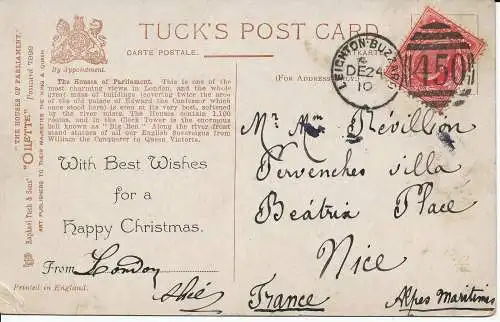 TUCK'S POST CARD.
CARTE POSTALE.
POSTKARTE.
By Appointment.
(FOR ADDRESS ONLY.)
"THE HOUSES OF PARLIAMENT."
Raphael Tuck & Sons' "OILETTE"
ART PUBLISHERS TO THEIR MAJESTIES THE KING & QUEEN
The Houses of Parliament. This is one of the
most charming views in London, and the whole
great mass of buildings (covering twice the area
of the old palace of Edward the Confessor which
once stood on its site) is very best, softened
by the river mists. The Houses contain 1,100
rooms, and in the Clock Tower is the enormous
bell known as "Big Ben." Along the river front
stand statues of all our English Sovereigns from
William the Conqueror to Queen Victoria.
LEIGHTON-BUZZARD
DE 24
10
450
With Best Wishes
for a
Happy Christmas.
From London
Printed in England.
Mr Mme Révillion
Pervenches villa
Béatrix Place
Nice
France
Alpes Maritimes